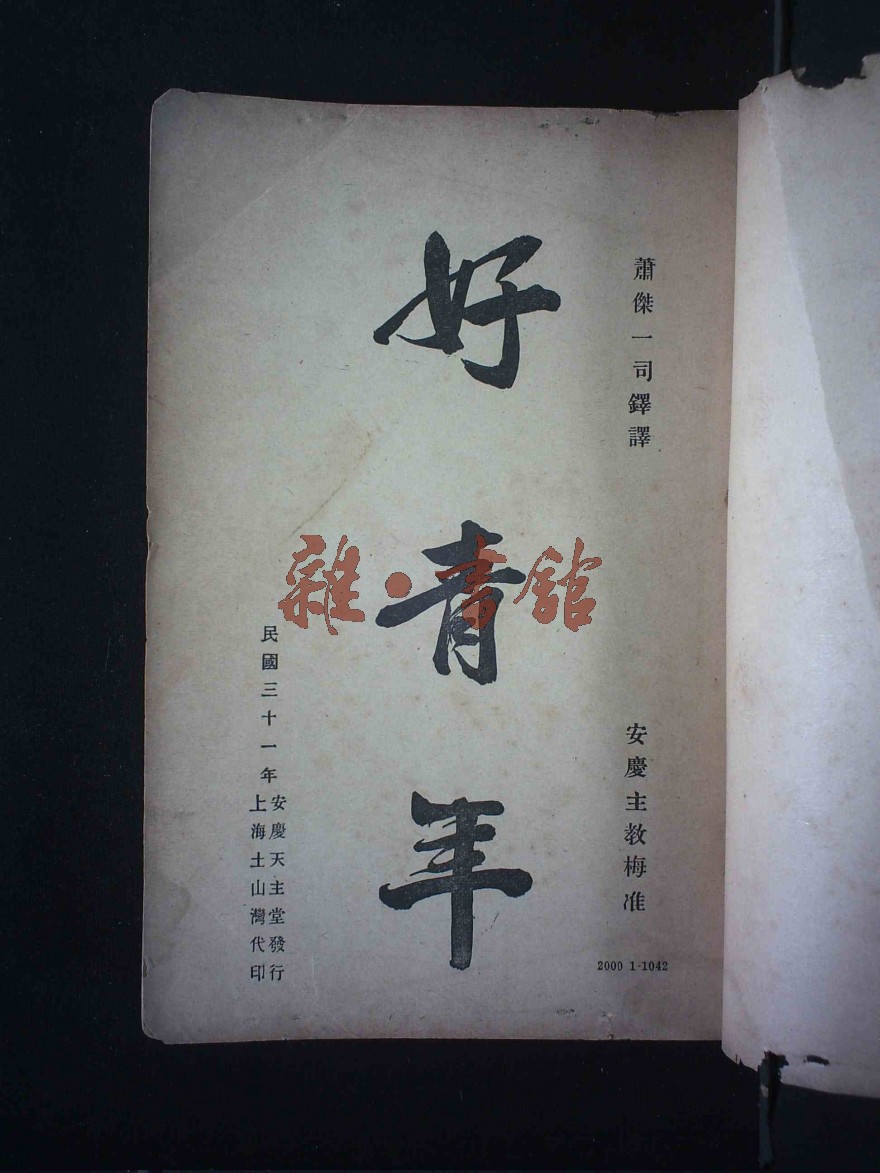 蕭傑一司鐸譯
安慶主教梅准
2000 1-1042
好青年
民國三十一年
安慶天主堂發行
上海土山灣代印
雜·書館